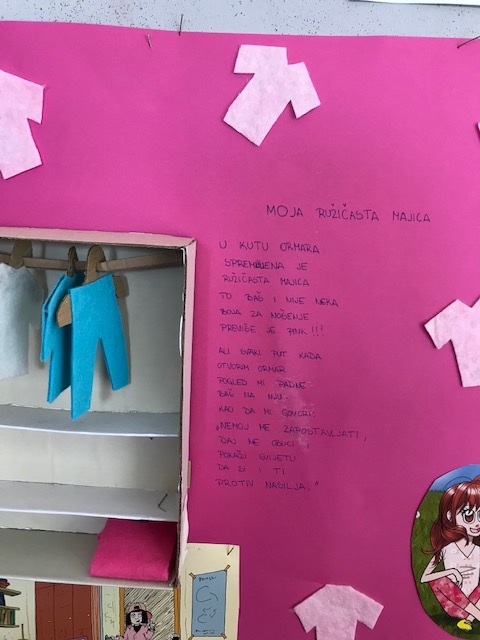 MOJA RUŽIČASTA MAJICA
U KUTU ORMARA
SPREMLJENA JE
RUŽIČASTA MAJICA
TO BAŠ I NIJE NEKA
BOJA ZA NOŠENJE
PREVIŠE JE PINK!!!
ALI SVAKI PUT KADA
OTVORIM ORMAR
POGLED MI PADNE
BAŠ NA NJU.
KAO DA MI GOVORI:
„NEMOJ ME ZAPOSTAVLJATI,
DAJ ME OBUCI I
POKAŽI SVIJETU
DA SI I TI
PROTIV NASILJA."